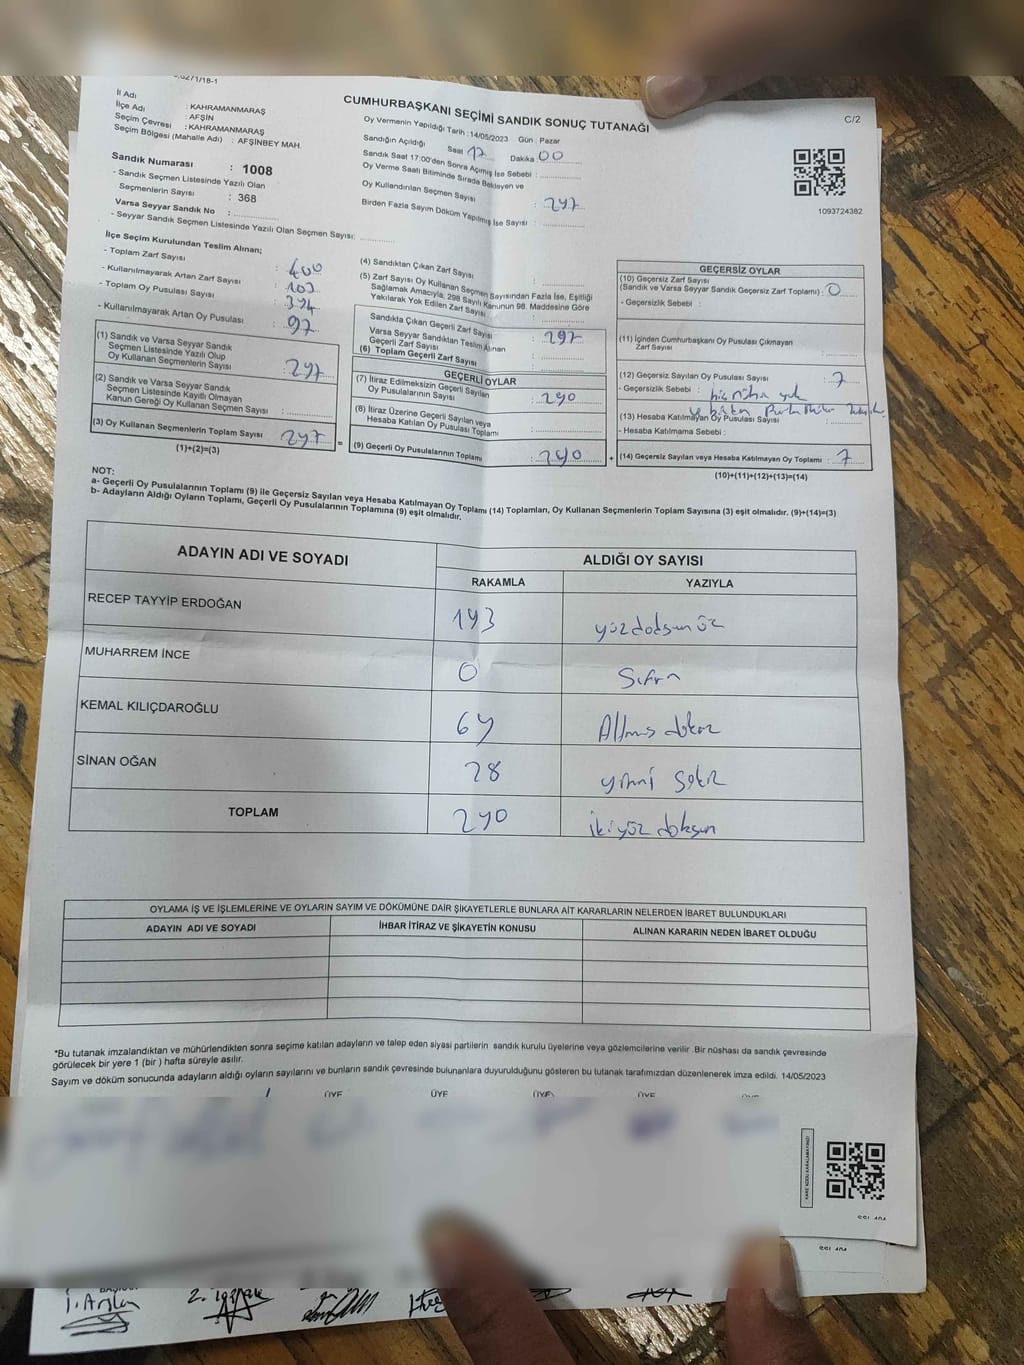 CUMHURBAŞKANI SEÇİMİ SANDIK SONUÇ TUTANAĞI
C/2
İl Adı : KAHRAMANMARAŞ
İlçe Adı : AFŞİN
Seçim Çevresi : KAHRAMANMARAŞ
Seçim Bölgesi (Mahalle Adı) : AFŞİNBEY MAH.
Sandık Numarası : 1008
- Sandık Seçmen Listesinde Yazılı Olan
Seçmenlerin Sayısı : 368
Varsa Seyyar Sandık No :
- Seyyar Sandık Seçmen Listesinde Yazılı Olan Seçmen Sayısı:
Oy Vermenin Yapıldığı Tarih :14/05/2023 Gün : Pazar
Sandığın Açıldığı Saat 17 Dakika 00
Sandık Saat 17:00'den Sonra Açılmış İse Sebebi :
Oy Verme Saati Bitiminde Sırada Bekleyen ve
Oy Kullandırılan Seçmen Sayısı : 297
Birden Fazla Sayım Döküm Yapılmış İse Sayısı :
1093724382
İlçe Seçim Kurulundan Teslim Alınan;
- Toplam Zarf Sayısı : 400
- Kullanılmayarak Artan Zarf Sayısı : 103
- Toplam Oy Pusulası Sayısı : 394
- Kullanılmayarak Artan Oy Pusulası : 97
(1) Sandık ve Varsa Seyyar Sandık
Seçmen Listesinde Yazılı Olup
Oy Kullanan Seçmenlerin Sayısı : 297
(2) Sandık ve Varsa Seyyar Sandık
Seçmen Listesinde Kayıtlı Olmayan
Kanun Gereği Oy Kullanan Seçmen Sayısı :
(3) Oy Kullanan Seçmenlerin Toplam Sayısı : 297
(1)+(2)=(3)
(4) Sandıktan Çıkan Zarf Sayısı :
(5) Zarf Sayısı Oy Kullanan Seçmen Sayısından Fazla İse, Eşitliği
Sağlamak Amacıyla, 298 Sayılı Kanunun 98. Maddesine Göre
Yakılarak Yok Edilen Zarf Sayısı :
Sandıkta Çıkan Geçerli Zarf Sayısı : 297
Varsa Seyyar Sandıktan Teslim Alınan
Geçerli Zarf Sayısı :
(6) Toplam Geçerli Zarf Sayısı :
GEÇERLİ OYLAR
(7) İtiraz Edilmeksizin Geçerli Sayılan
Oy Pusulalarının Sayısı : 290
(8) İtiraz Üzerine Geçerli Sayılan veya
Hesaba Katılan Oy Pusulası Toplamı :
(9) Geçerli Oy Pusulalarının Toplamı : 290
GEÇERSİZ OYLAR
(10) Geçersiz Zarf Sayısı
(Sandık ve Varsa Seyyar Sandık Geçersiz Zarf Toplamı) : 0
- Geçersizlik Sebebi :
(11) İçinden Cumhurbaşkanı Oy Pusulası Çıkmayan
Zarf Sayısı :
(12) Geçersiz Sayılan Oy Pusulası Sayısı : 7
- Geçersizlik Sebebi :
(13) Hesaba Katılmayan Oy Pusulası Sayısı :
- Hesaba Katılmama Sebebi :
(14) Geçersiz Sayılan veya Hesaba Katılmayan Oy Toplamı : 7
(10)+(11)+(12)+(13)=(14)
NOT:
a- Geçerli Oy Pusulalarının Toplamı (9) ile Geçersiz Sayılan veya Hesaba Katılmayan Oy Toplamı (14) Toplamları, Oy Kullanan Seçmenlerin Toplam Sayısına (3) eşit olmalıdır. (9)+(14)=(3)
b- Adayların Aldığı Oyların Toplamı, Geçerli Oy Pusulalarının Toplamına (9) eşit olmalıdır.
ADAYIN ADI VE SOYADI
ALDIĞI OY SAYISI
RAKAMLA YAZIYLA
RECEP TAYYİP ERDOĞAN 193 yüzdoksanüç
MUHARREM İNCE 0 Sıfır
KEMAL KILIÇDAROĞLU 69 Altmış dokuz
SİNAN OĞAN 28 yirmi sekiz
TOPLAM 290 iki yüz doksan
OYLAMA İŞ VE İŞLEMLERİNE VE OYLARIN SAYIM VE DÖKÜMÜNE DAİR ŞİKAYETLERLE BUNLARA AİT KARARLARIN NELERDEN İBARET BULUNDUKLARI
ADAYIN ADI VE SOYADI İHBAR İTİRAZ VE ŞİKAYETİN KONUSU ALINAN KARARIN NEDEN İBARET OLDUĞU
*Bu tutanak imzalandıktan ve mühürlendikten sonra seçime katılan adayların ve talep eden siyasi partilerin sandık kurulu üyelerine veya gözlemcilerine verilir .Bir nüshası da sandık çevresinde
görülecek bir yere 1 (bir ) hafta süreyle asılır.
Sayım ve döküm sonucunda adayların aldığı oyların sayılarını ve bunların sandık çevresinde bulunanlara duyurulduğunu gösteren bu tutanak tarafımızdan düzenlenerek imza edildi. 14/05/2023
ÜYE ÜYE ÜYE ÜYE
KARE KODU KARALAMAYINIZ!